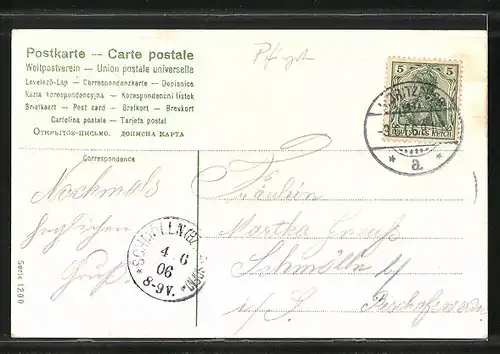 Postkarte — Carte postale
Weltpostverein — Union postale universelle
Levelező-Lap — Correspondenzkarte — Dopisnice
Karta korespondencyjna — Korespondenční lístek
Briefkaart — Post card — Brefkort — Brevkort
Cartolina postale — Tarjeta postal
Открытое-письмо. дописна карта
5 5
DEUTSCHES REICH
* a. *
Correspondence
Nochmals
herzlichen
Gruß
Fräulein
Martha
Schmölln
i/S. Bischofswerda
4 6
06
8-9V.
Serie 1200